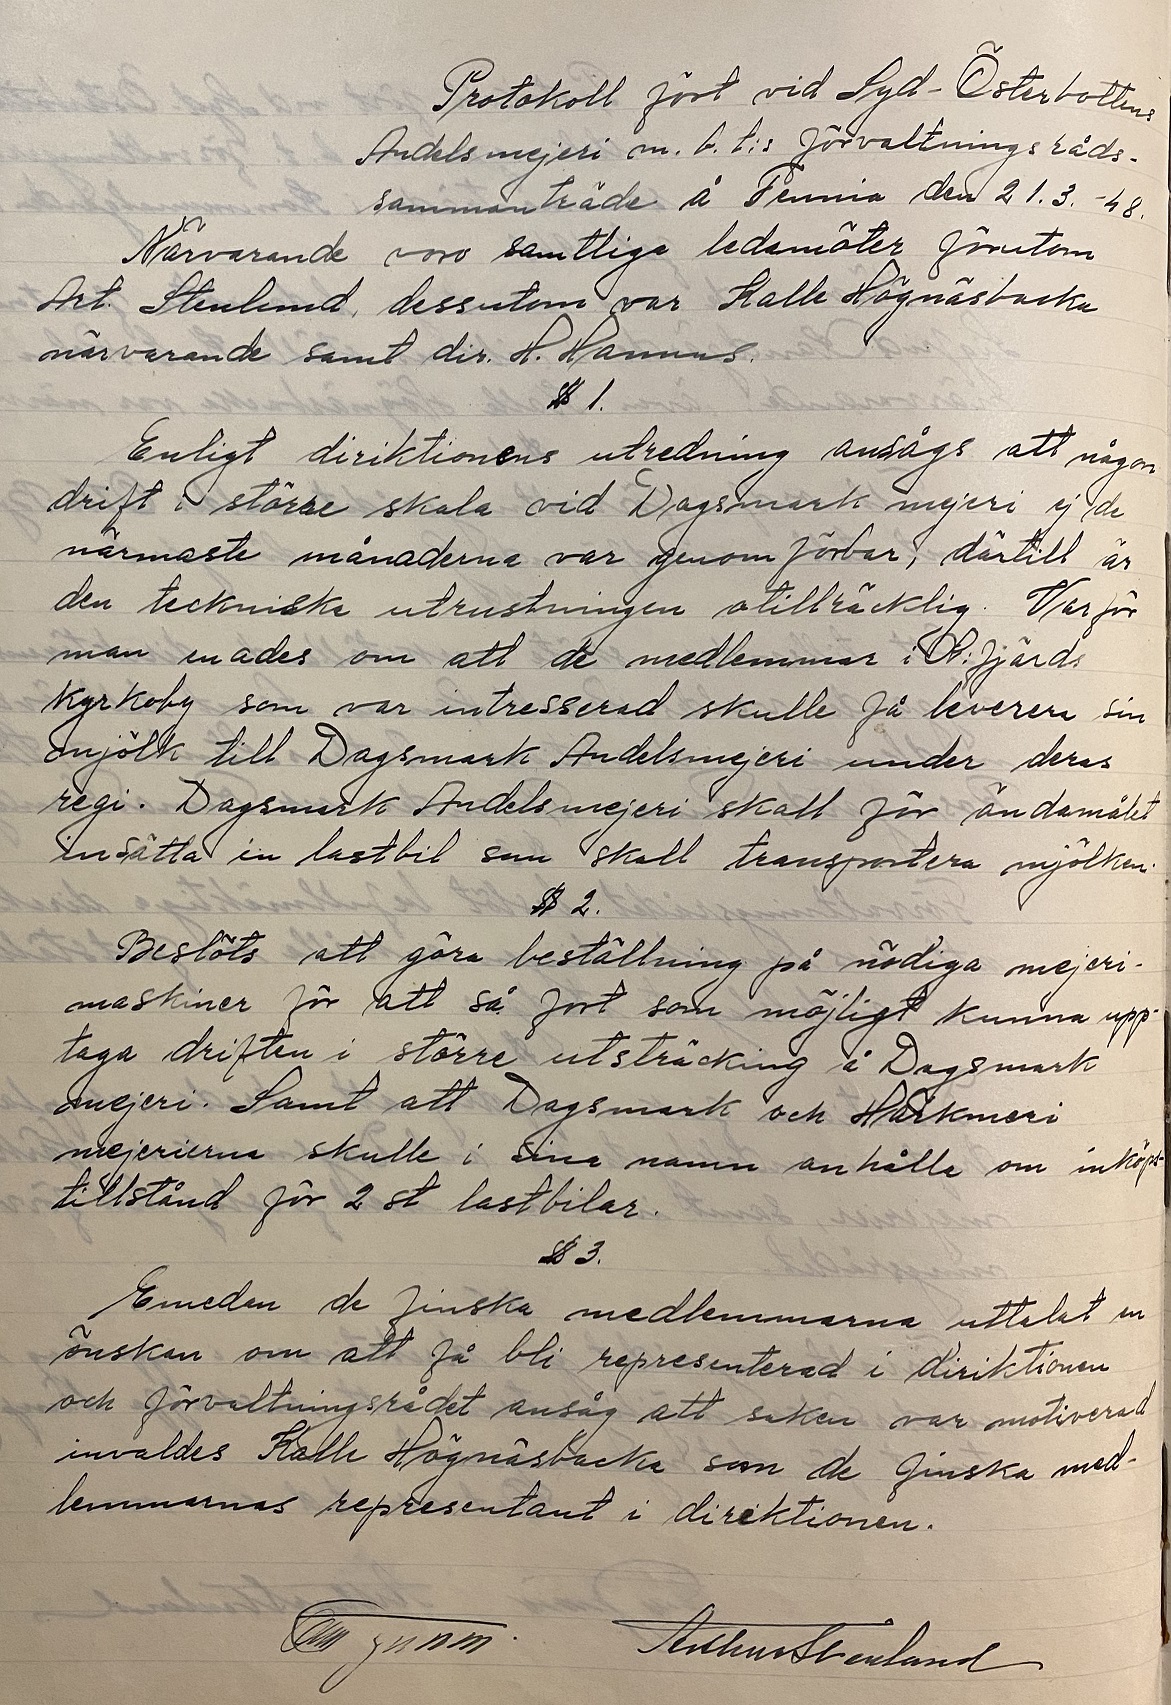 Protokoll fört vid Syd-Österbottens
Andelsmejeri m.b.t:s förvaltningsråds-
sammanträde å Fennia den 21.3.-48.
Närvarande voro samtliga ledamöter förutom
Art. Stenlund, dessutom var Kalle Högnäsbacka
närvarande samt dir. H. Hannus.
§ 1.
Enligt diriktionens utredning ansågs att någon
drift i större skala vid Dagsmark mejeri ej de
närmaste månaderna var genomförbar, därtill är
den teckniska utrustningen otillräcklig. Varför
man enades om att de medlemmar i Ö:fjärds
kyrkoby som var intresserad skulle få leverera sin
mjölk till Dagsmark Andelsmejeri under deras
regi. Dagsmark Andelsmejeri skall för ändamålet
insätta en lastbil som skall transportera mjölken.
§ 2.
Beslöts att göra beställning på nödiga mejeri-
maskiner för att så fort som möjligt kunna upp-
taga driften i större utsträcking å Dagsmark
mejeri. Samt att Dagsmark och Härkmeri
mejerierna skulle i sina namn anhålla om inköps-
tillstånd för 2 st lastbilar.
§ 3.
Emedan de finska medlemmarna uttalat en
önskan om att få bli representerad i diriktionen
och förvaltningsrådet ansåg att saken var motiverad
invaldes Kalle Högnäsbacka som de finska med-
lemmarnas representant i direktionen.
Arthur Stenlund